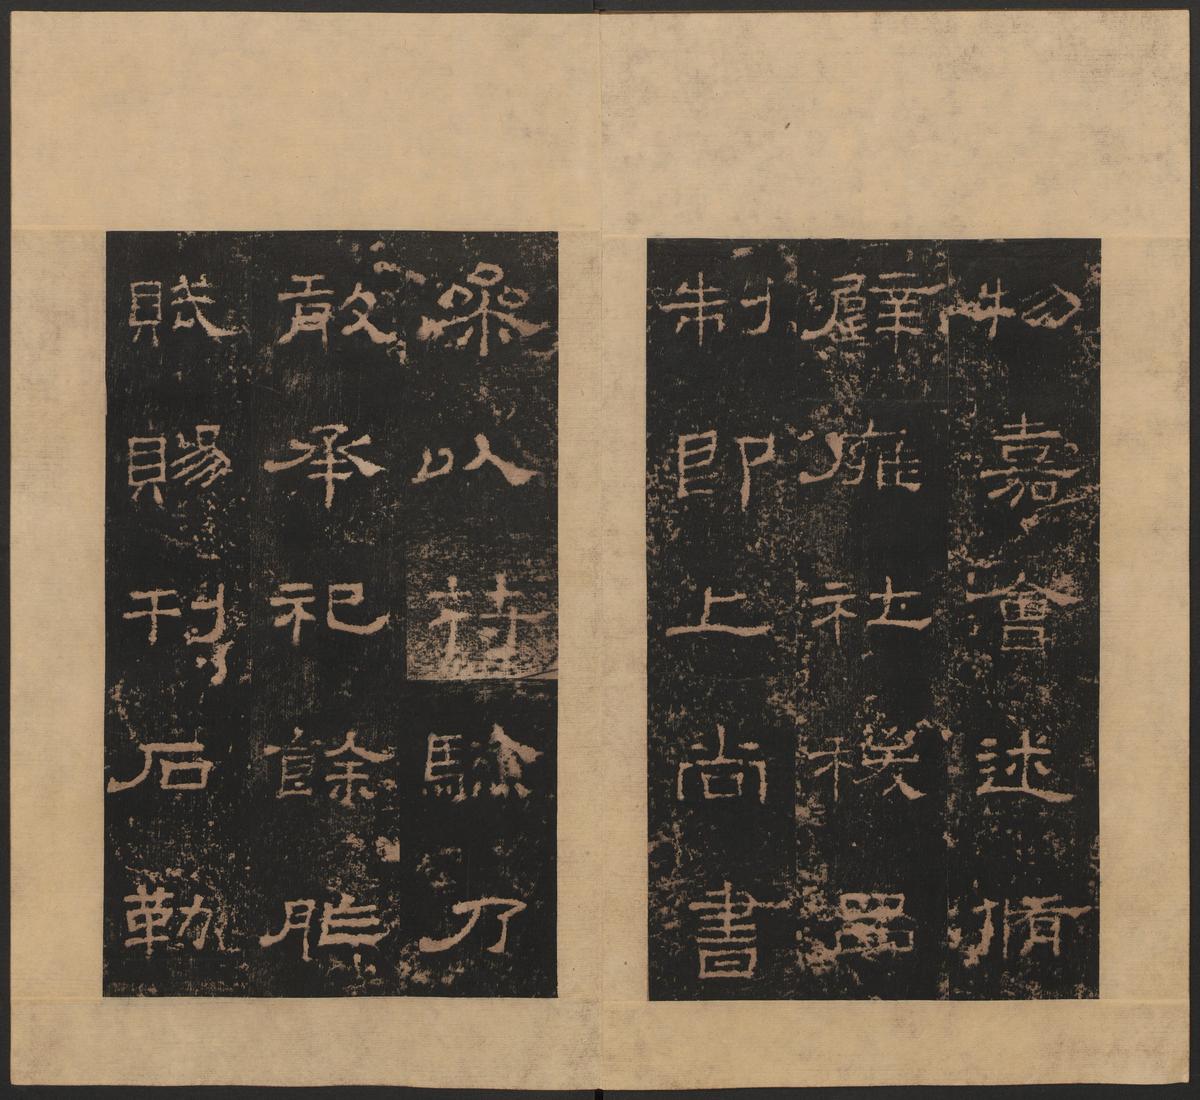 物嘉會述脩
璧廱社稷品
制即上尚書
參以符驗乃
敢承祀餘胙
賦賜刊石勒